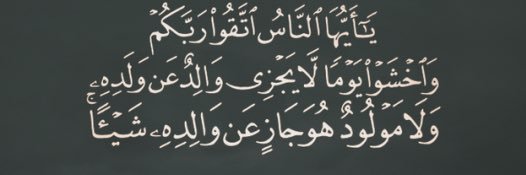 يَـٰٓأَيُّهَا ٱلنَّاسُ ٱتَّقُوا۟ رَبَّكُمْ
وَٱخْشَوْا۟ يَوْمًا لَّا يَجْزِى وَالِدٌ عَن وَلَدِهِۦ
وَلَا مَوْلُودٌ هُوَ جَازٍ عَن وَالِدِهِۦ شَيْـًٔا ۚ